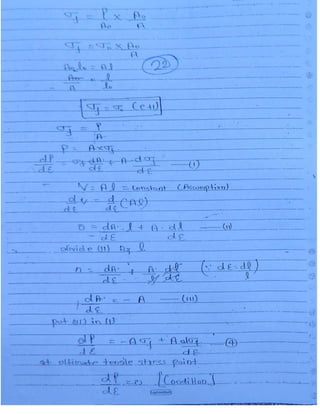 σj = P/A₀ × A₀/A
σj = σ₀ × A₀/A
(22)
A₀l₀ = Al
A₀/A = l/l₀
σj = σ₀ (e+1)
σj = P/A
P = A×σj
dP/dε = σj dA/dε + A·dσj/dε —(1)
V = Al = constant (Assumption)
dv/dε = d/dε (Al)
0 = dA/dε · l + A · dl/dε —(11)
divide (11) by l
0 = dA/dε + A/l · dl/dε (∵ dε = dl/l)
dA/dε = - A —(111)
put (111) in (1)
dP/dε = -Aσj + A dσj/dε —(4)
at ultimate tensile stress point
dP/dε = 0 [Condition]